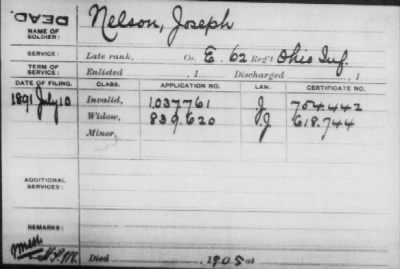 DEAD.
NAME OF SOLDIER: Nelson, Joseph
SERVICE: Late rank, Co. E. 62 Reg't Ohio Inf.
TERM OF SERVICE: Enlisted , 1 Discharged , 1
DATE OF FILING. CLASS. APPLICATION NO. LAW. CERTIFICATE NO.
1891 July 10 Invalid, 1037761 J. 704.442
Widow, 839.620 J. 618.744
Minor,
ADDITIONAL SERVICES:
REMARKS:
Died 1905 at